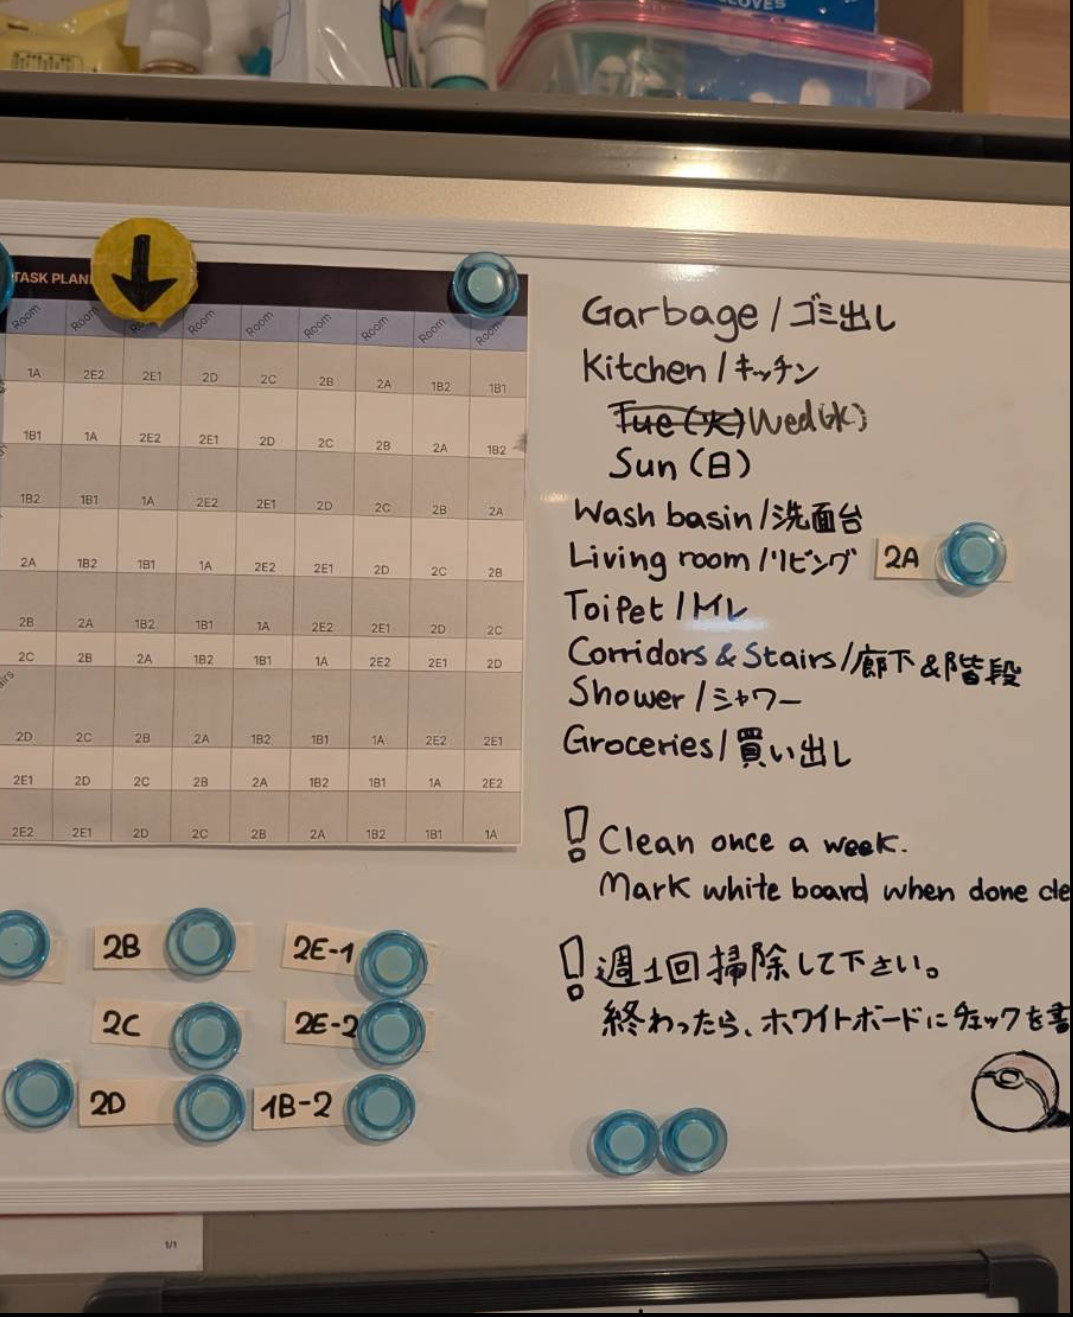 GLOVES
TASK PLAN
Room Room Room Room Room Room Room Room
1A 2E2 2E1 2D 2C 2B 2A 1B2 1B1
1B1 1A 2E2 2E1 2D 2C 2B 2A 1B2
1B2 1B1 1A 2E2 2E1 2D 2C 2B 2A
2A 1B2 1B1 1A 2E2 2E1 2D 2C 2B
2B 2A 1B2 1B1 1A 2E2 2E1 2D 2C
2C 2B 2A 1B2 1B1 1A 2E2 2E1 2D
2D 2C 2B 2A 1B2 1B1 1A 2E2 2E1
2E1 2D 2C 2B 2A 1B2 1B1 1A 2E2
2E2 2E1 2D 2C 2B 2A 1B2 1B1 1A
Garbage / ゴミ出し
Kitchen / キッチン
Tue (火) Wed (水)
Sun (日)
Wash basin / 洗面台
Living room / リビング 2A
Toilet / トイレ
Corridors & Stairs / 廊下 & 階段
Shower / シャワー
Groceries / 買い出し
! Clean once a week.
Mark white board when done cle
! 週1回掃除して下さい。
終わったら、ホワイトボードにチェックを書
2B 2E-1
2C 2E-2
2D 1B-2
1/1